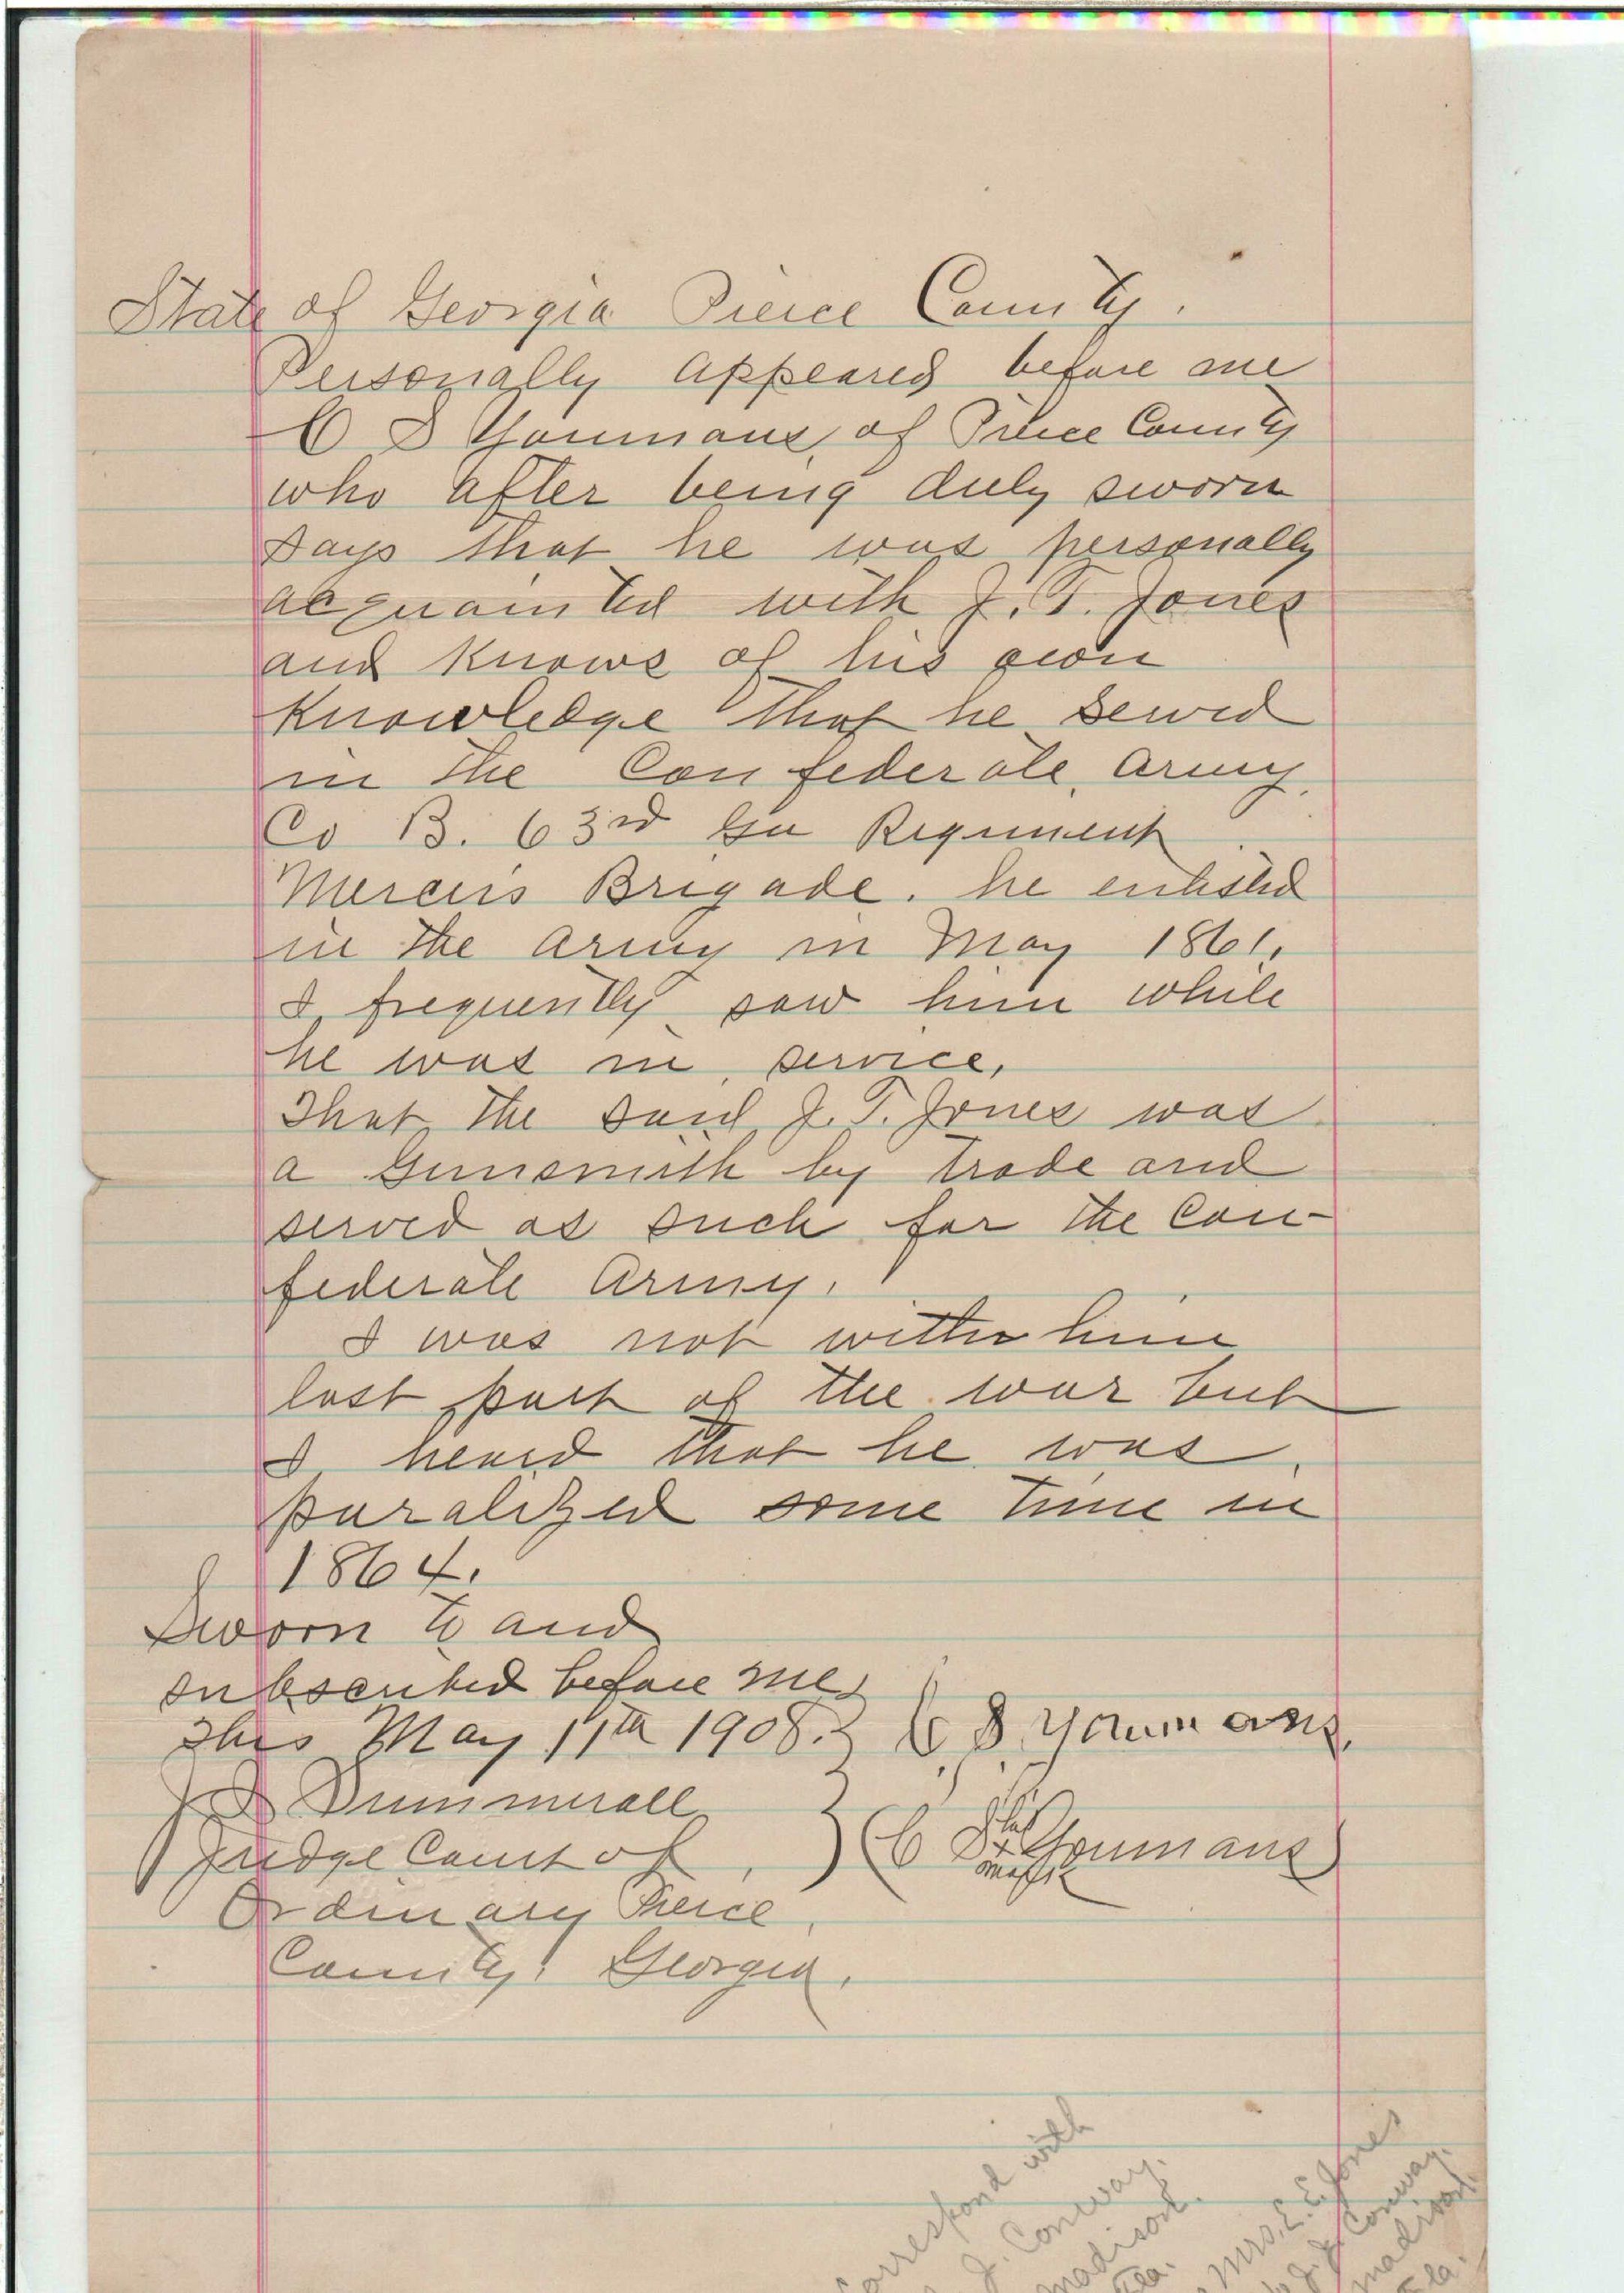 State of Georgia Pierce County.
Personally appeared before me
C S Youmans, of Pierce County
who after being duly sworn
says that he was personally
acquainted with J. T. Jones
and knows of his own
knowledge that he served
in the Confederate, army,
Co B. 63rd Ga Regiment
Mercers Brigade. he enlisted
in the army in May 1861,
I frequently saw him while
he was in service,
That the said J. T. Jones was
a Gunsmith by trade and
served as such for the Con-
federate Army,
I was not with him
last part of the war but
I heard that he was
paralized some time in
1864.
Sworn to and
subscribed before me
this May 11th 1908. C S Youmans,
Dummerall
Judge Court of } (C S his x mark Youmans)
Ordinary Pierce
County, Georgia,
correspond with
J. Conway.
Madison.
Fla.
Mrs. E. E. Jones
J. J. Conway.
Madison.
Fla.